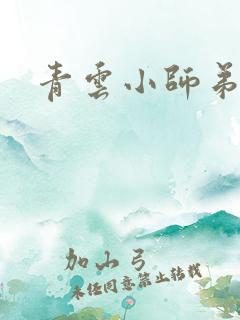 青雲小師弟
加山弓
未经同意禁止转载